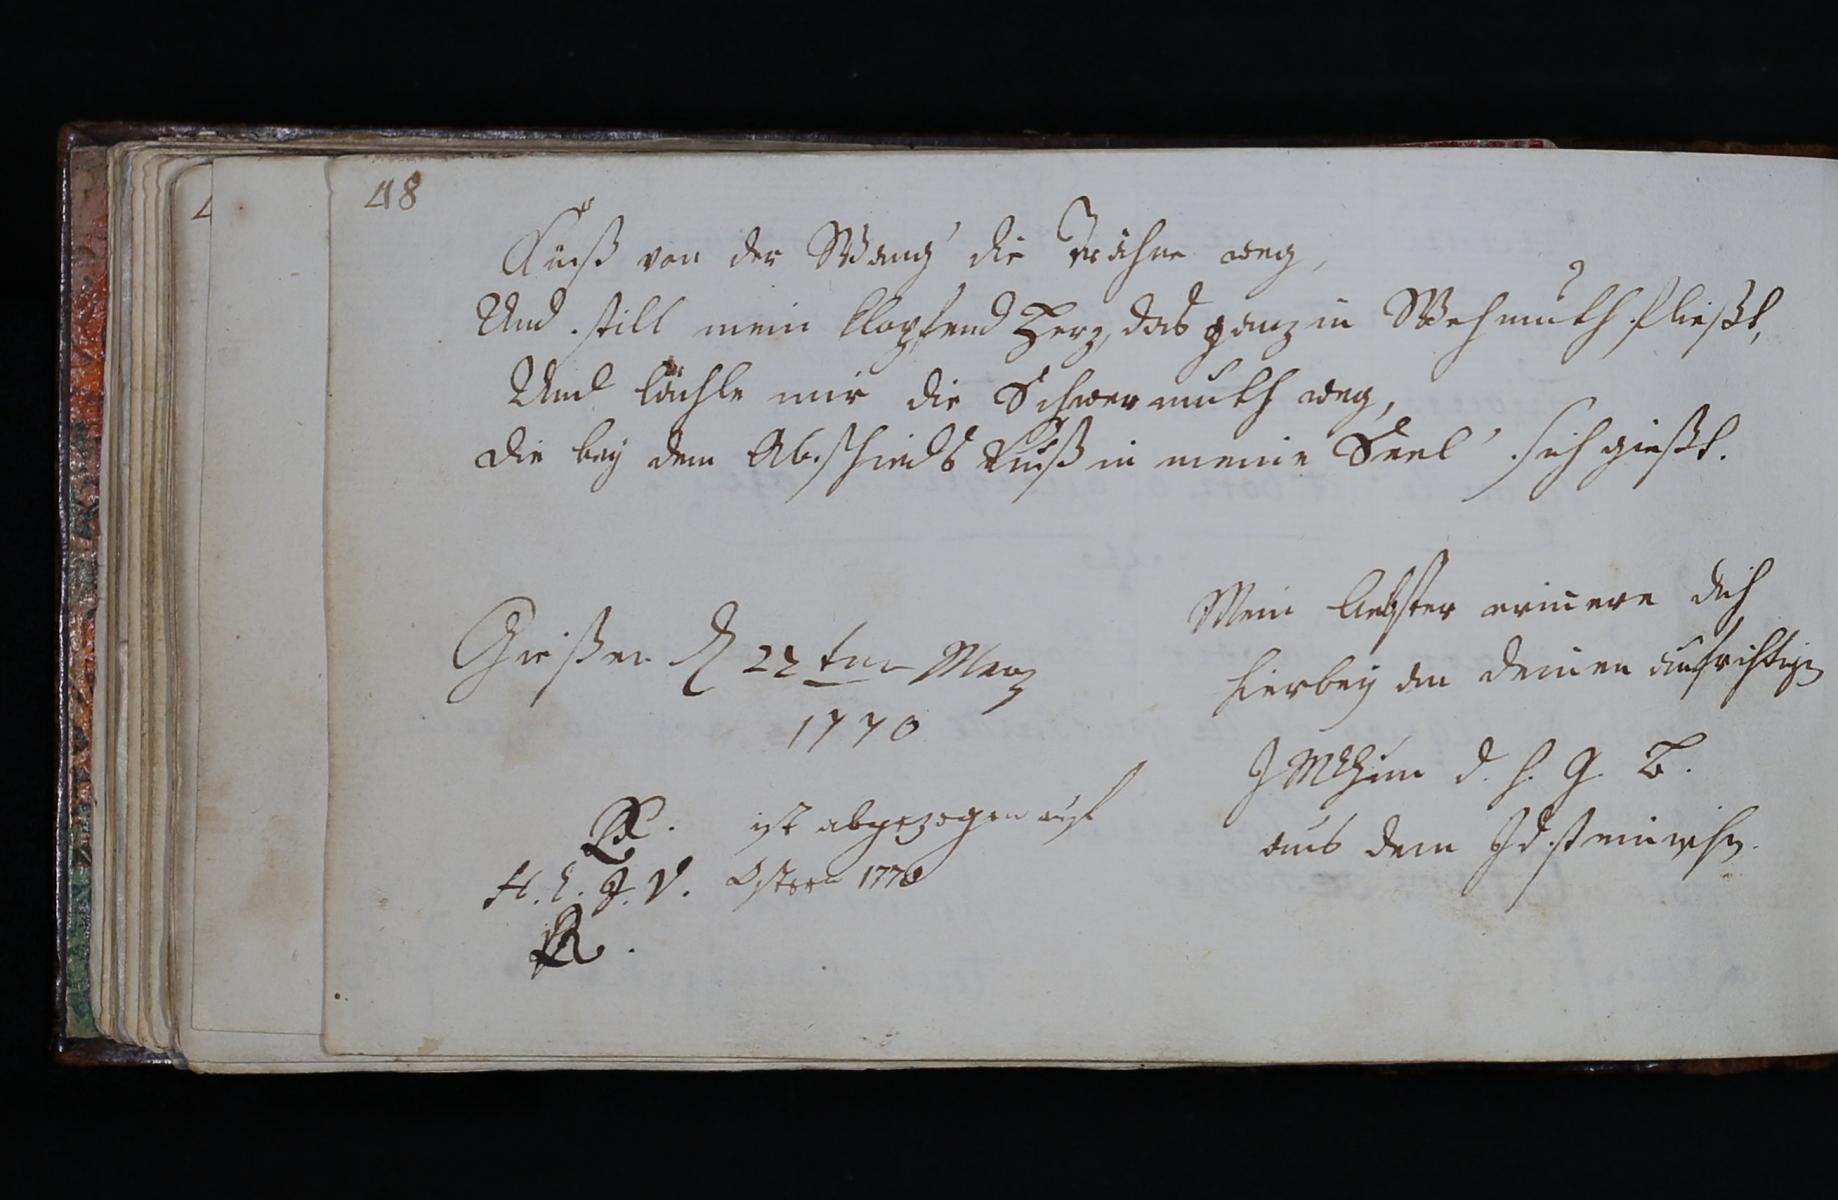 48
Küß von der Wang' die Trähne weg,
Und still mein klopfend Herz, das ganz in Wehmuth fließt,
Und lächle mir die Schwermuth weg,
die bey dem Abschieds Kuß in meine Seel' sich gießt.
Gießen d 22ten Merz
1770
Mein liebster erinnere dich
hierbey an deinen aufrichtigen
d. h. G. B.
aus dem Idsteinischen.
ist abgezogen auf
H. L. J. V. Ostern 1770